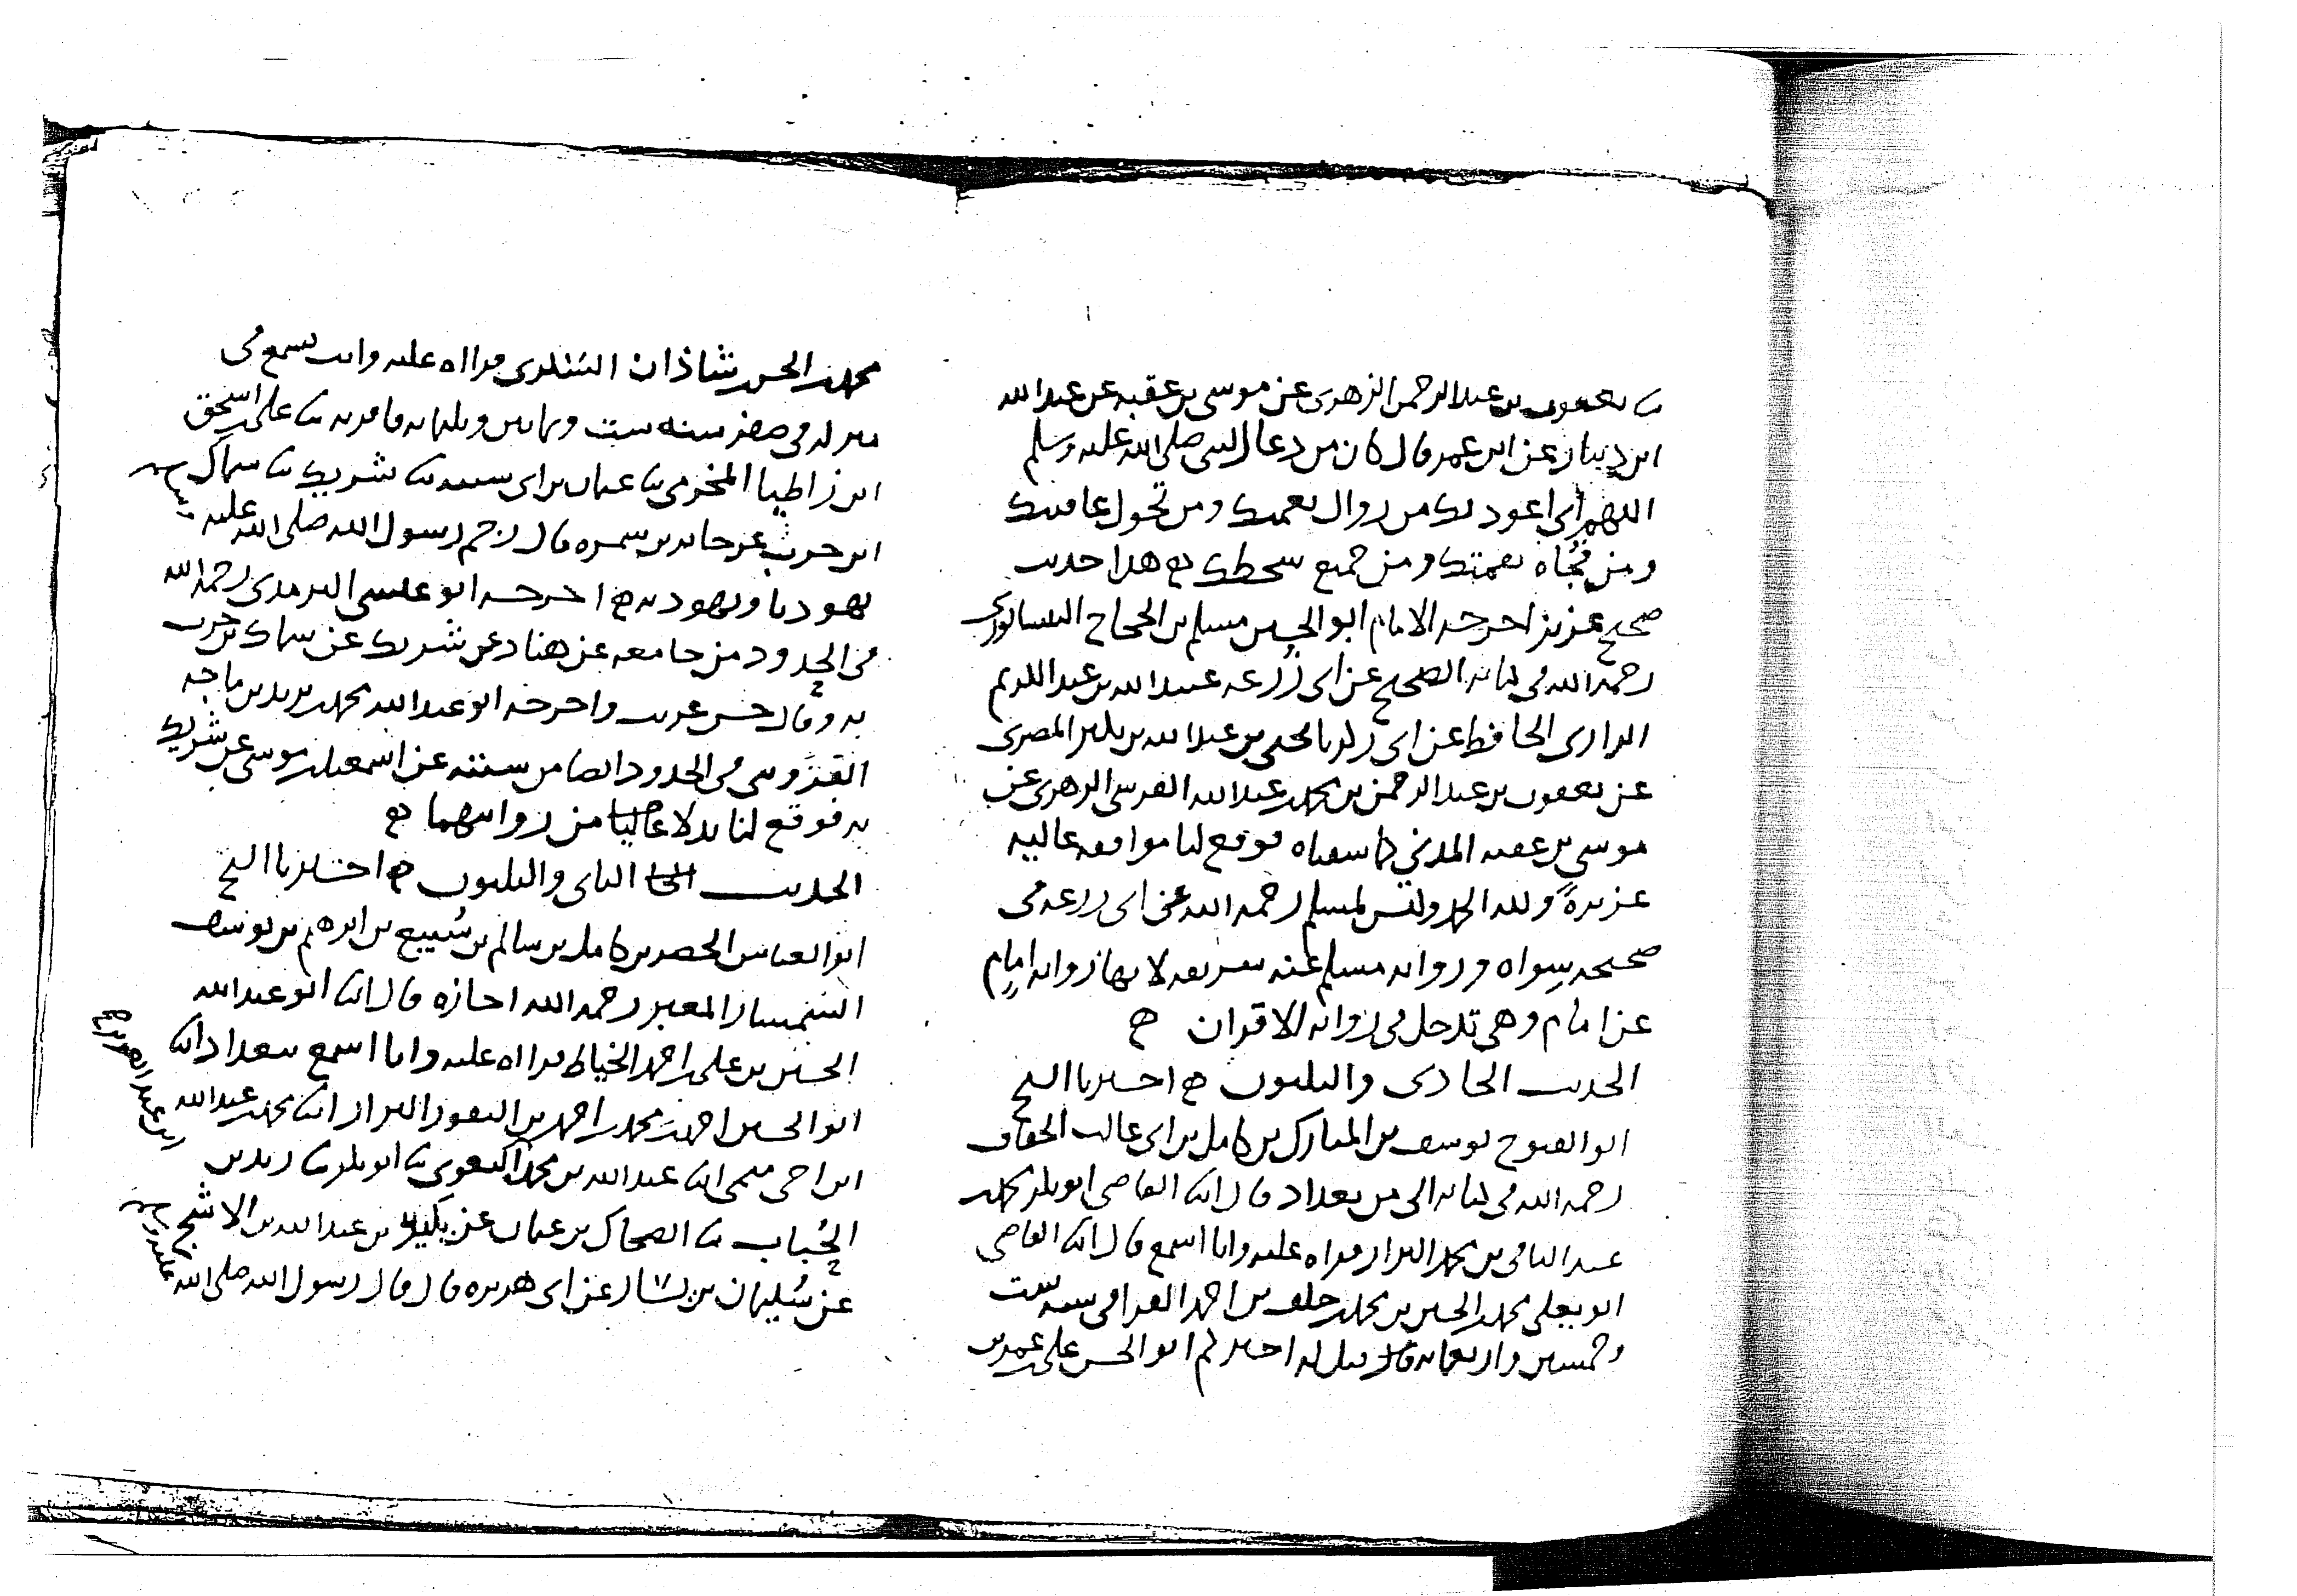 ثنا يعقوب بن عبد الرحمن الزهري عن موسى بن عقبة عن عبد الله
ابن دينار عن ابن عمر قال كان من دعا النبي صلى الله عليه وسلم
اللهم اني اعوذ بك من زوال نعمتك ومن تحول عافيتك
ومن فجاة نقمتك ومن جميع سخطك هذا حديث
صحيح عزيز اخرجه الامام ابو الحسين مسلم بن الحجاج النيسابوري
رحمه الله في كتابه الصحيح عن ابي زرعة عبيد الله بن عبد الكريم
الرازي الحافظ عن ابي زكريا يحيى بن عبد الله بن بكير المصري
عن يعقوب بن عبد الرحمن بن محمد بن عبد الله القرشي الزهري عن
موسى بن عقبة المديني كما سقناه فوقع لنا موافقة عالية
عزيزة ولله الحمد وليس لمسلم رحمه الله عن ابي زرعة في
صحيحه سواه ورواية مسلم عنه لانها رواية امام
عن امام وهي تدخل في رواية الاقران
الحديث الحادي والثلثون اخبرنا الشيخ
ابو الفتوح يوسف بن المبارك بن كامل بن ابي غالب الخفاف
رحمه الله في كتابه الي من بغداد قال انا القاضي ابو بكر محمد بن
عبد الباقي بن محمد البزاز قراة عليه وانا اسمع قال انا القاضي
ابو يعلى محمد بن الحسين بن محمد بن خلف بن احمد الفرا في سنة ست
وخمسين واربعمائة قال قيل له اخبركم ابو الحسن علي بن عمر بن
محمد بن الحسن بن شاذان السكري قرااة عليه وانت تسمع في
منزله في صفر سنة ست وثمانين وثلثمائة فاقر به ثنا علي بن اسحق
ابن زاطيا المخرمي ثنا عثمان بن ابي شيبة ثنا شريك ثنا سماك
ابن حرب عن جابر بن سمرة قال رجم رسول الله صلى الله عليه وسلم
يهوديا ويهودية اخرجه ابو عيسى الترمذي رحمه الله
في الحدود من جامعه عن هناد عن شريك عن سماك بن حرب
به وقال حسن غريب واخرجه ابو عبد الله محمد بن يزيد بن ماجه
القزويني في الحدود ايضا من سننه عن اسمعيل بن موسى عن شريك
به فوقع لنا بدلا عاليا من روايتهما
الحديث الثاني والثلثون اخبرنا الشيخ
ابو العباس الخضر بن كامل بن سالم بن سبيع بن ابرهيم بن يوسف
السمسار المعبر رحمه الله اجازة قال انا ابو عبد الله
الحسين بن علي بن احمد الخياط قرااة عليه وانا اسمع ببغداد انا
ابو الحسين احمد بن محمد بن احمد بن النقور البزاز انا محمد بن عبد الله
ابن اخي ميمي انا عبد الله بن محمد البغوي ثنا ابو بكر ثنا زيد بن
الحباب ثنا الضحاك بن عثمان عن بكير بن عبد الله بن الاشج
عن سليمان بن يسار عن ابي هريرة قال قال رسول الله صلى الله عليه وسلم